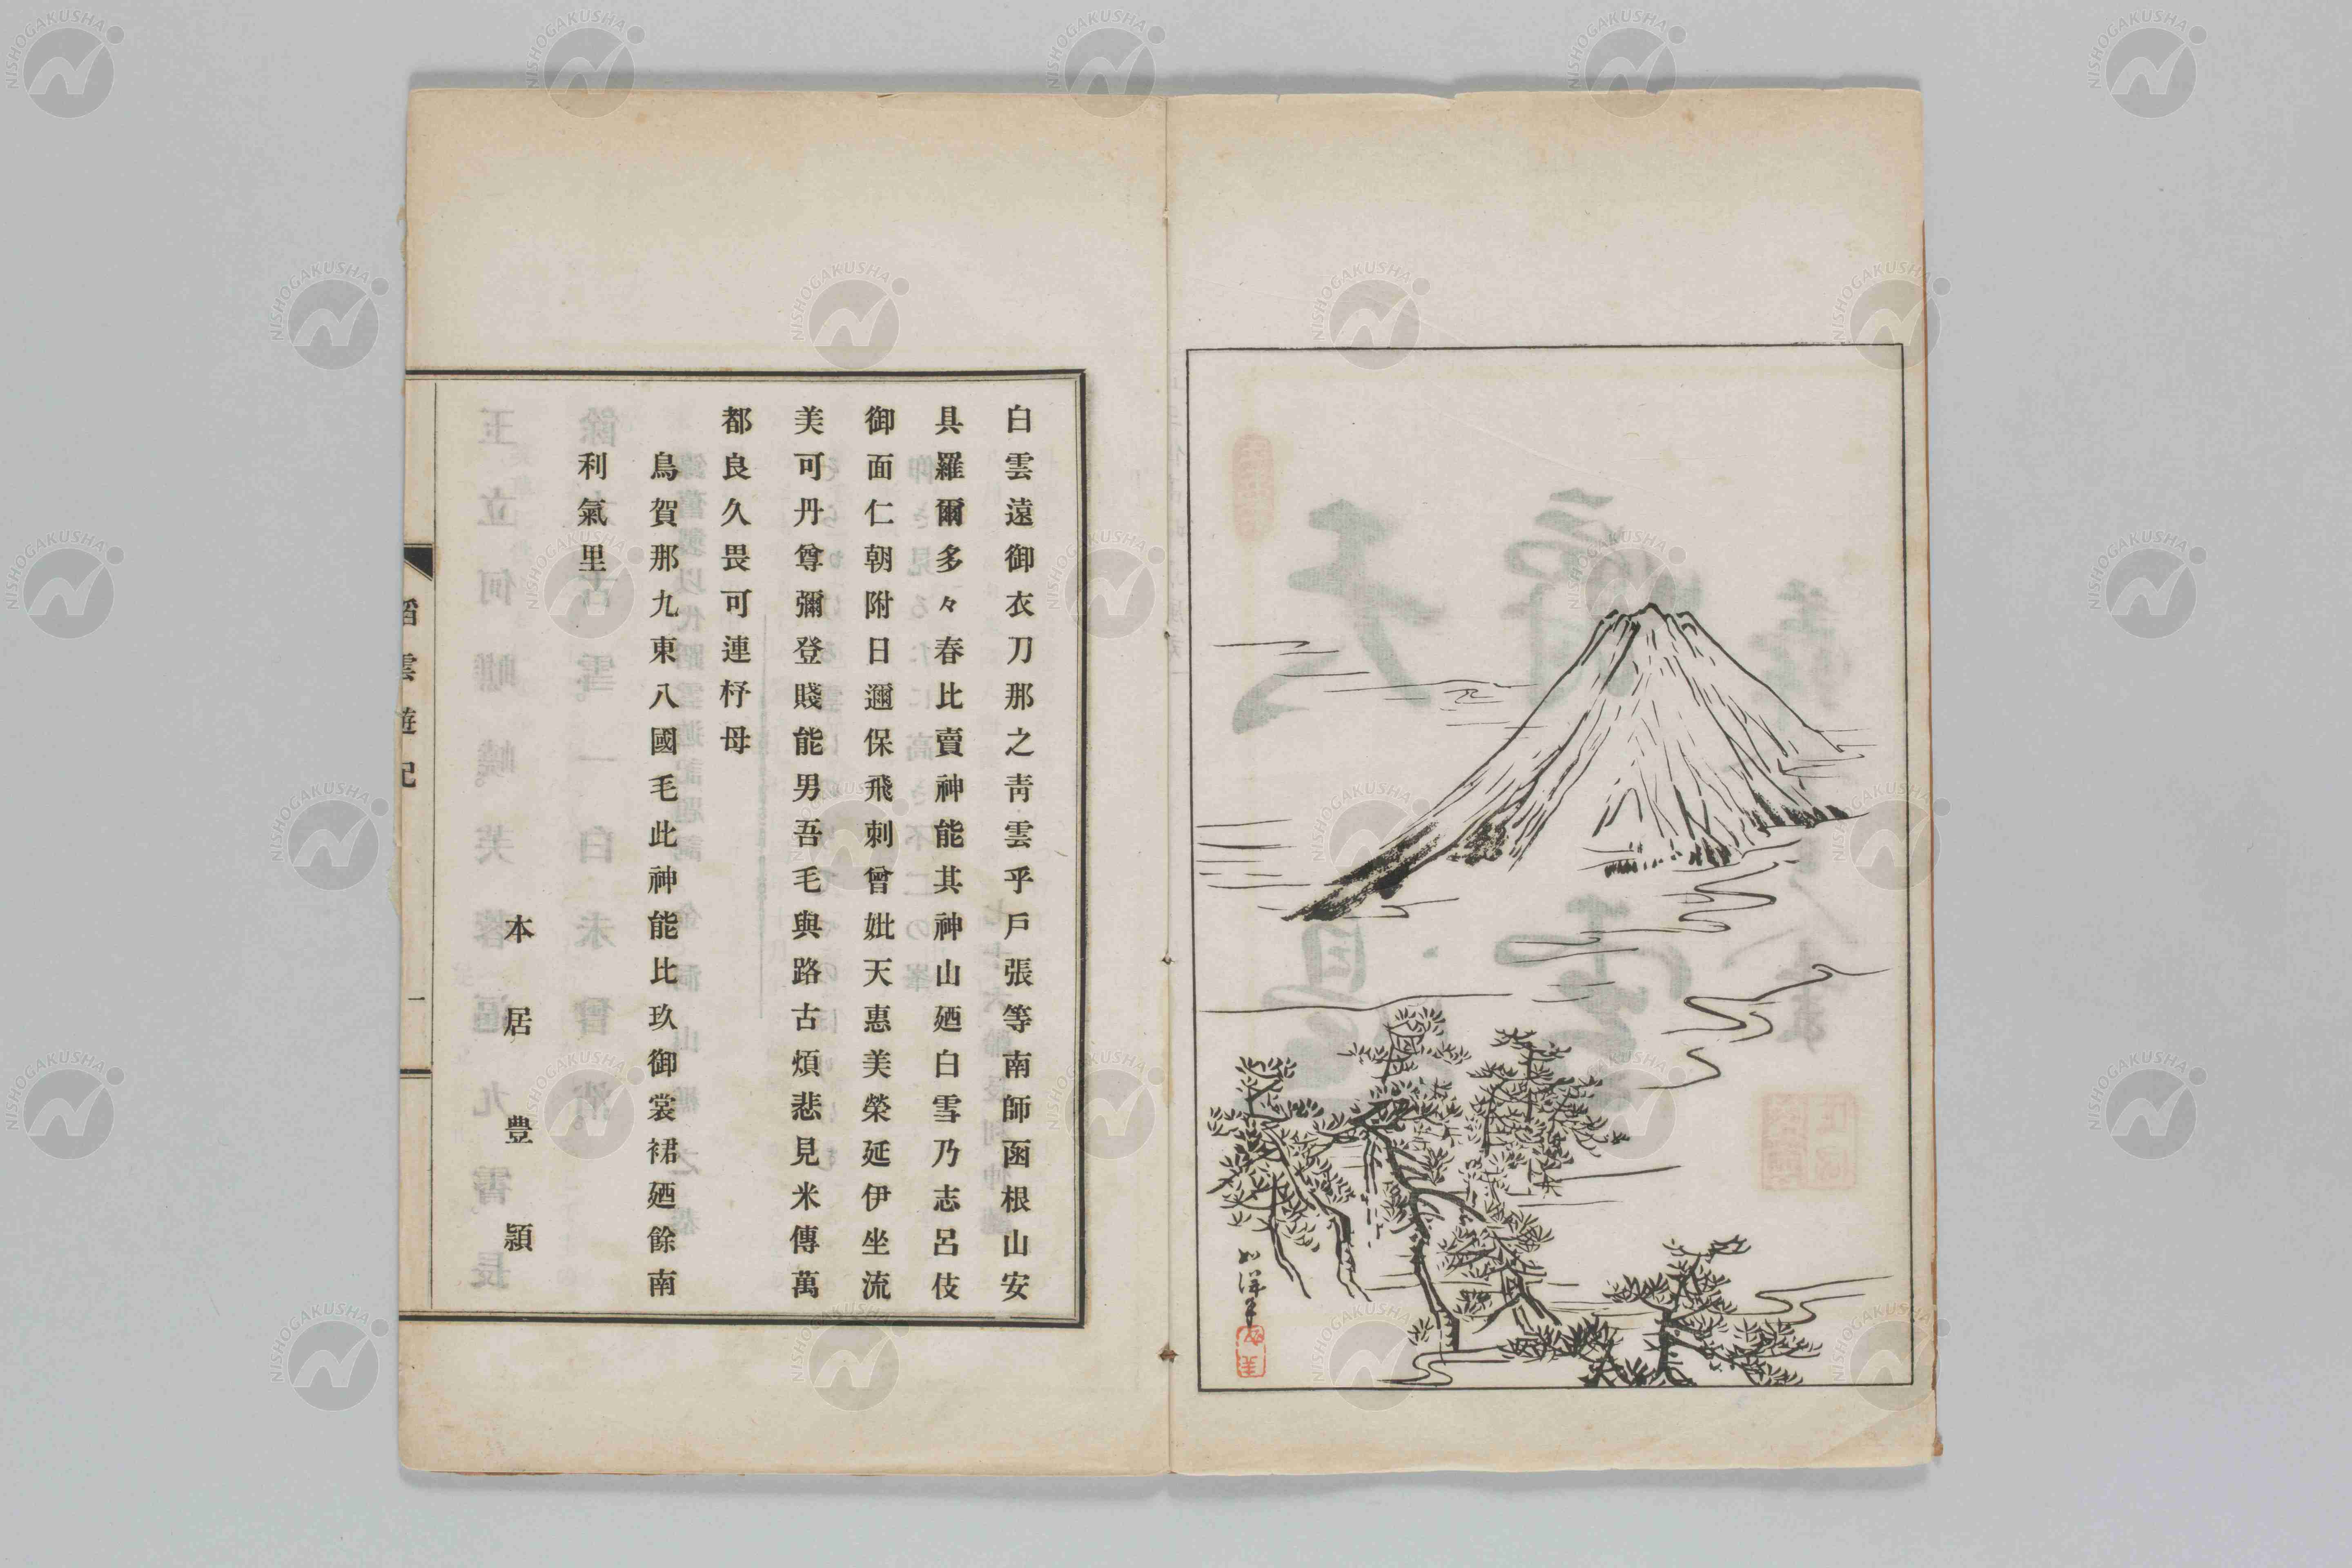 白雲遠御衣刀那之靑雲乎戶張等南師函根山安
具羅爾多々春比賣神能其神山廼白雪乃志呂伎
御面仁朝附日邇保飛刺曾妣天惠美榮延伊坐流
美可丹尊彌登賤能男吾毛與路古煩悲見米傳萬
都良久畏可連杼母
鳥賀那九東八國毛此神能比玖御裳裙廼餘南
利氣里
本居豊頴
蹈雲遊記
一
NISHOGAKUSHA